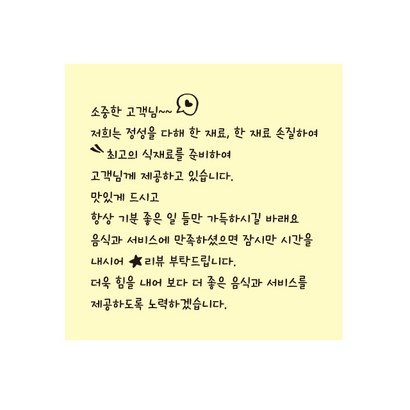 소중한 고객님~~
저희는 정성을 다해 한 재료, 한 재료 손질하여
최고의 식재료를 준비하여
고객님께 제공하고 있습니다.
맛있게 드시고
항상 기분 좋은 일 들만 가득하시길 바래요
음식과 서비스에 만족하셨으면 잠시만 시간을
내시어 ★리뷰 부탁드립니다.
더욱 힘을 내어 보다 더 좋은 음식과 서비스를
제공하도록 노력하겠습니다.